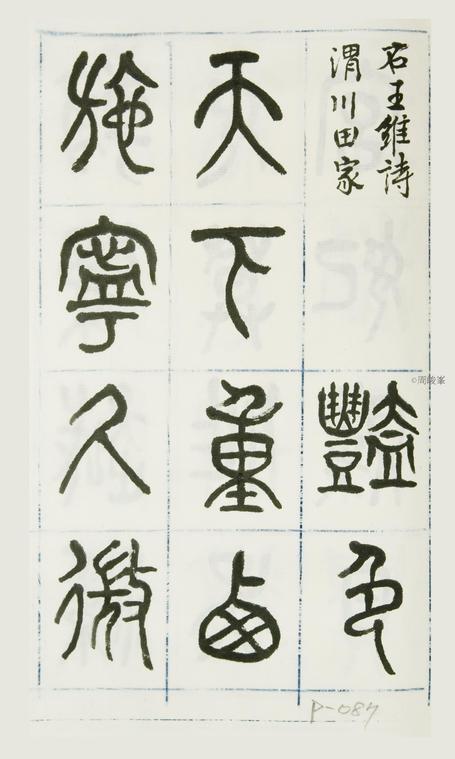 右王維詩
渭川田家
豔色
天下重西
施寧久微
©周峻峯
P-087